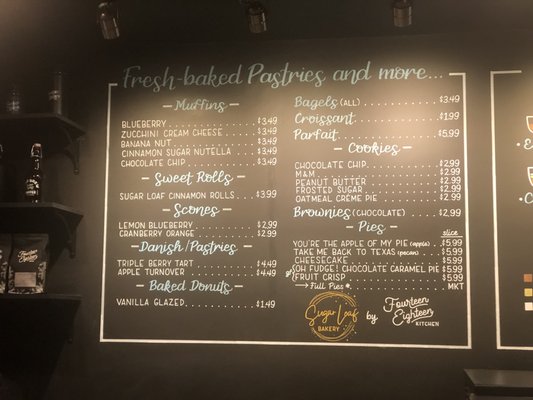 Fresh-baked Pastries and more...
Muffins
BLUEBERRY $3.49
ZUCCHINI CREAM CHEESE $3.49
BANANA NUT $3.49
CINNAMON SUGAR NUTELLA $3.49
CHOCOLATE CHIP $3.49
Sweet Rolls
SUGAR LOAF CINNAMON ROLLS $3.99
Scones
LEMON BLUEBERRY $2.99
CRANBERRY ORANGE $2.99
Danish/Pastries
TRIPLE BERRY TART $4.49
APPLE TURNOVER $4.49
Baked Donuts
VANILLA GLAZED $1.49
Bagels (ALL) $3.49
Croissant $1.99
Parfait $5.99
Cookies
CHOCOLATE CHIP $2.99
M&M $2.99
PEANUT BUTTER $2.99
FROSTED SUGAR $2.99
OATMEAL CRÈME PIE $2.99
Brownies (CHOCOLATE) $2.99
Pies
slice
YOU'RE THE APPLE OF MY PIE (apple) $5.99
TAKE ME BACK TO TEXAS (pecan) $5.99
CHEESECAKE $5.99
OH FUDGE! CHOCOLATE CARAMEL PIE $5.99
FRUIT CRISP $5.99
→ Full Pies MKT
Sugar Loaf
BAKERY
by
Fourteen
Eighteen
KITCHEN